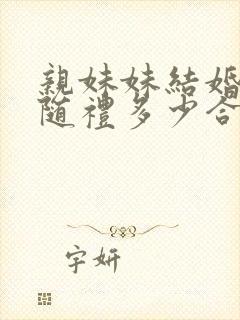 親妹妹結婚
随禮多少合
字妍